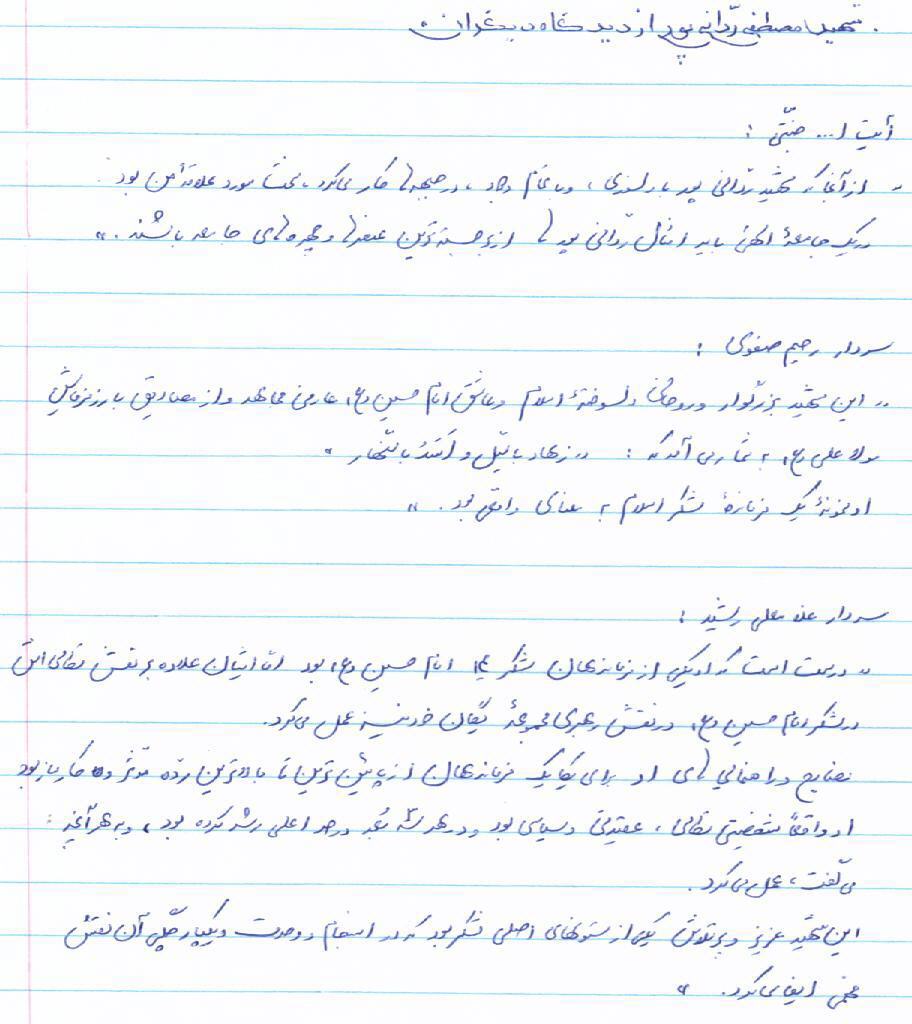 « شهید مصطفی ردانی پور از دیدگاه دیگران »
آیت ا... جنتی :
« از آنجا که شهید ردانی پور با دلسوزی ، و با تمام وجود ، در جبهه ها کار می کرد ، سخت مورد علاقه من بود .
در یک جامعهٔ الهی باید امثال ردانی پور ها از برجسته ترین عنصرها و چهره های جامعه باشند . »
سردار رحیم صفوی :
« این شهید بزرگوار و روحانی دلسوختهٔ اسلام و عاشق امام حسین (ع) عارفی مجاهد و از مصادیق بارز فرمایش
مولا علی (ع) به شمار می آمد که : « زهاد باللیل و اسد بالنهار »
او نمونهٔ یک فرماندهٔ لشکر اسلام به معنای واقعی بود . »
سردار غلامعلی رشید :
« درست است که او یکی از فرماندهان لشکر امام حسین (ع) بود اما ایشان علاوه بر نقش نظامی اش
در لشکر امام حسین (ع) ، در نقش رهبری مجموعهٔ یگان خود نیز عمل می کرد.
نصایح و راهنمایی های او برای یکایک فرماندهان از پایین ترین تا بالاترین رده موثر و کارساز بود
او واقعاً شخصیتی نظامی ، عقیدتی و سیاسی بود و در هر سه بُعد در حد اعلی رشد کرده بود ، و به هر آنچه
می گفت ، عمل می کرد .
این شهید عزیز و پرتلاش یکی از ستونهای اصلی لشکر بود که در انسجام و وحدت و یکپارچگی آن نقش
مهمی ایفا می کرد . »